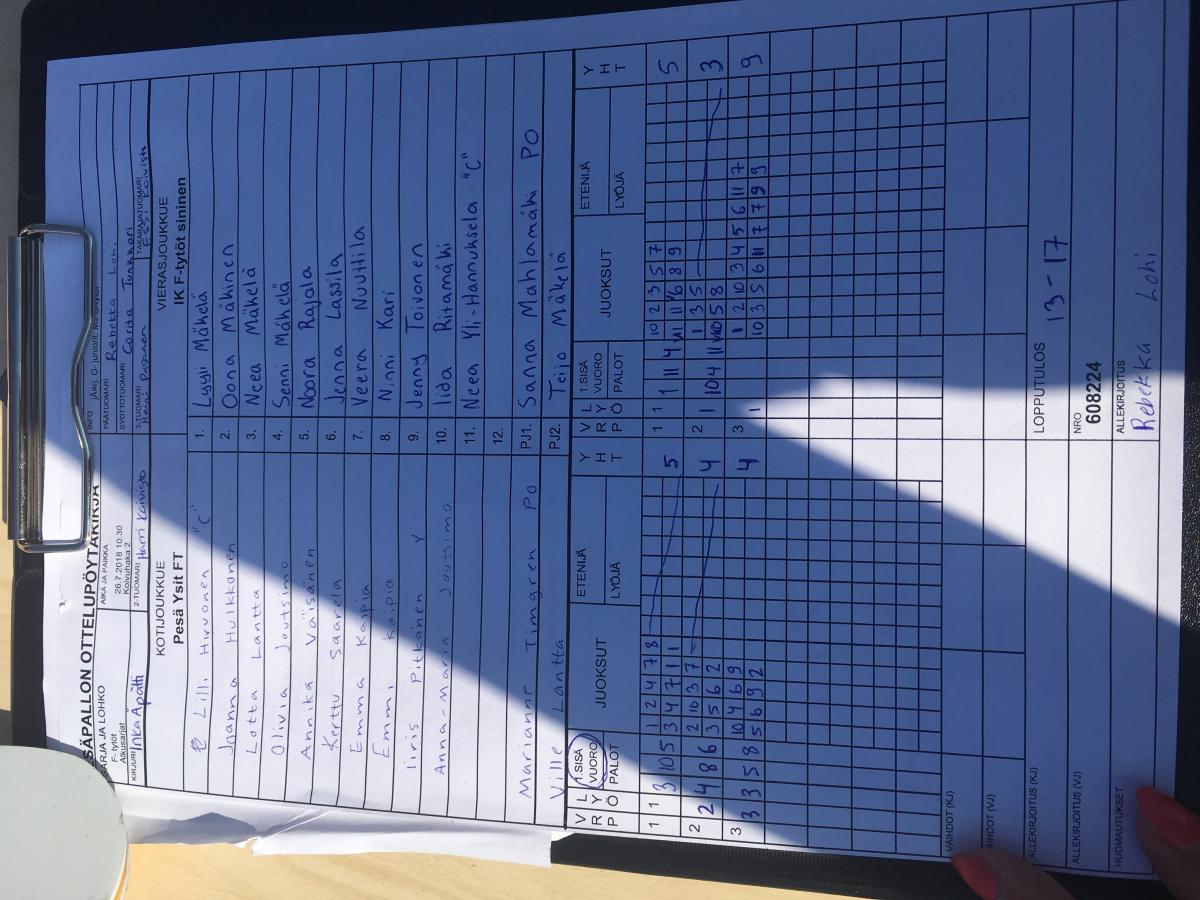 SÄPALLON OTTELUPÖYTÄKIRJA
SARJA JA LOHKO
F- tytöt
Alkusarjat
AIKA JA PAIKKA
26.7.2018 10:30
Koivuhaka 2
INFO järj. G-juniorit
PÄÄTUOMARI Rebekka Lohi
SYÖTTÖTUOMARI Carita Tunkkari
KIRJURI Inka Äpätti
2-TUOMARI Harri Koivisto
3-TUOMARI Heini Pasanen
TAKARAJATUOMARI Essi Koivisto
KOTIJOUKKUE
Pesä Ysit FT
VIERASJOUKKUE
IK F-tytöt sininen
Lilli Hirvonen "C" 1. Lyyli Mäkelä
Joanna Hulkkonen 2. Oona Mäkinen
Lotta Lantta 3. Neea Mäkelä
Olivia Joutsimo 4. Senni Mäkelä
Annika Väisänen 5. Noora Rajala
Kerttu Saarela 6. Jenna Lassila
Emma Kaipia 7. Veera Nuuttila
Emmi Kaipia 8. Ninni Kari
Iiris Pitkänen Y 9. Jenny Toivonen
Anna-Maria Joutsimo 10. Iida Ritamäki
11. Neea Yli-Hannuksela "C"
12.
Marianne Timgren PO PJ1. Sanna Mahlamäki PO
Ville Lantta PJ2. Teijo Mäkelä
V L 1.SISÄ JUOKSUT ETENIJÄ Y V L 1.SISÄ JUOKSUT ETENIJÄ Y
R Y VUORO H R Y VUORO H
P Ö PALOT LYÖJÄ T P Ö PALOT LYÖJÄ T
1 1 3 10 5 1 2 4 7 8 5 1 1 1 11 4 10 2 3 5 7 5
3 4 7 1 1 11 6 8 9
2 2 4 8 6 2 10 3 7 4 2 1 10 4 11 1 3 5 3
3 5 6 2 10 5 8
3 3 3 5 8 10 4 6 9 4 3 1 1 2 10 3 4 5 6 11 7 9
5 6 9 2 10 3 5 6 11 7 7 9 9
VAIHDOT (KJ)
VAIHDOT (VJ)
ALLEKIRJOITUS (KJ)
LOPPUTULOS 13 - 17
ALLEKIRJOITUS (VJ)
NRO
608224
HUOMAUTUKSET
ALLEKIRJOITUS
Rebekka Lohi